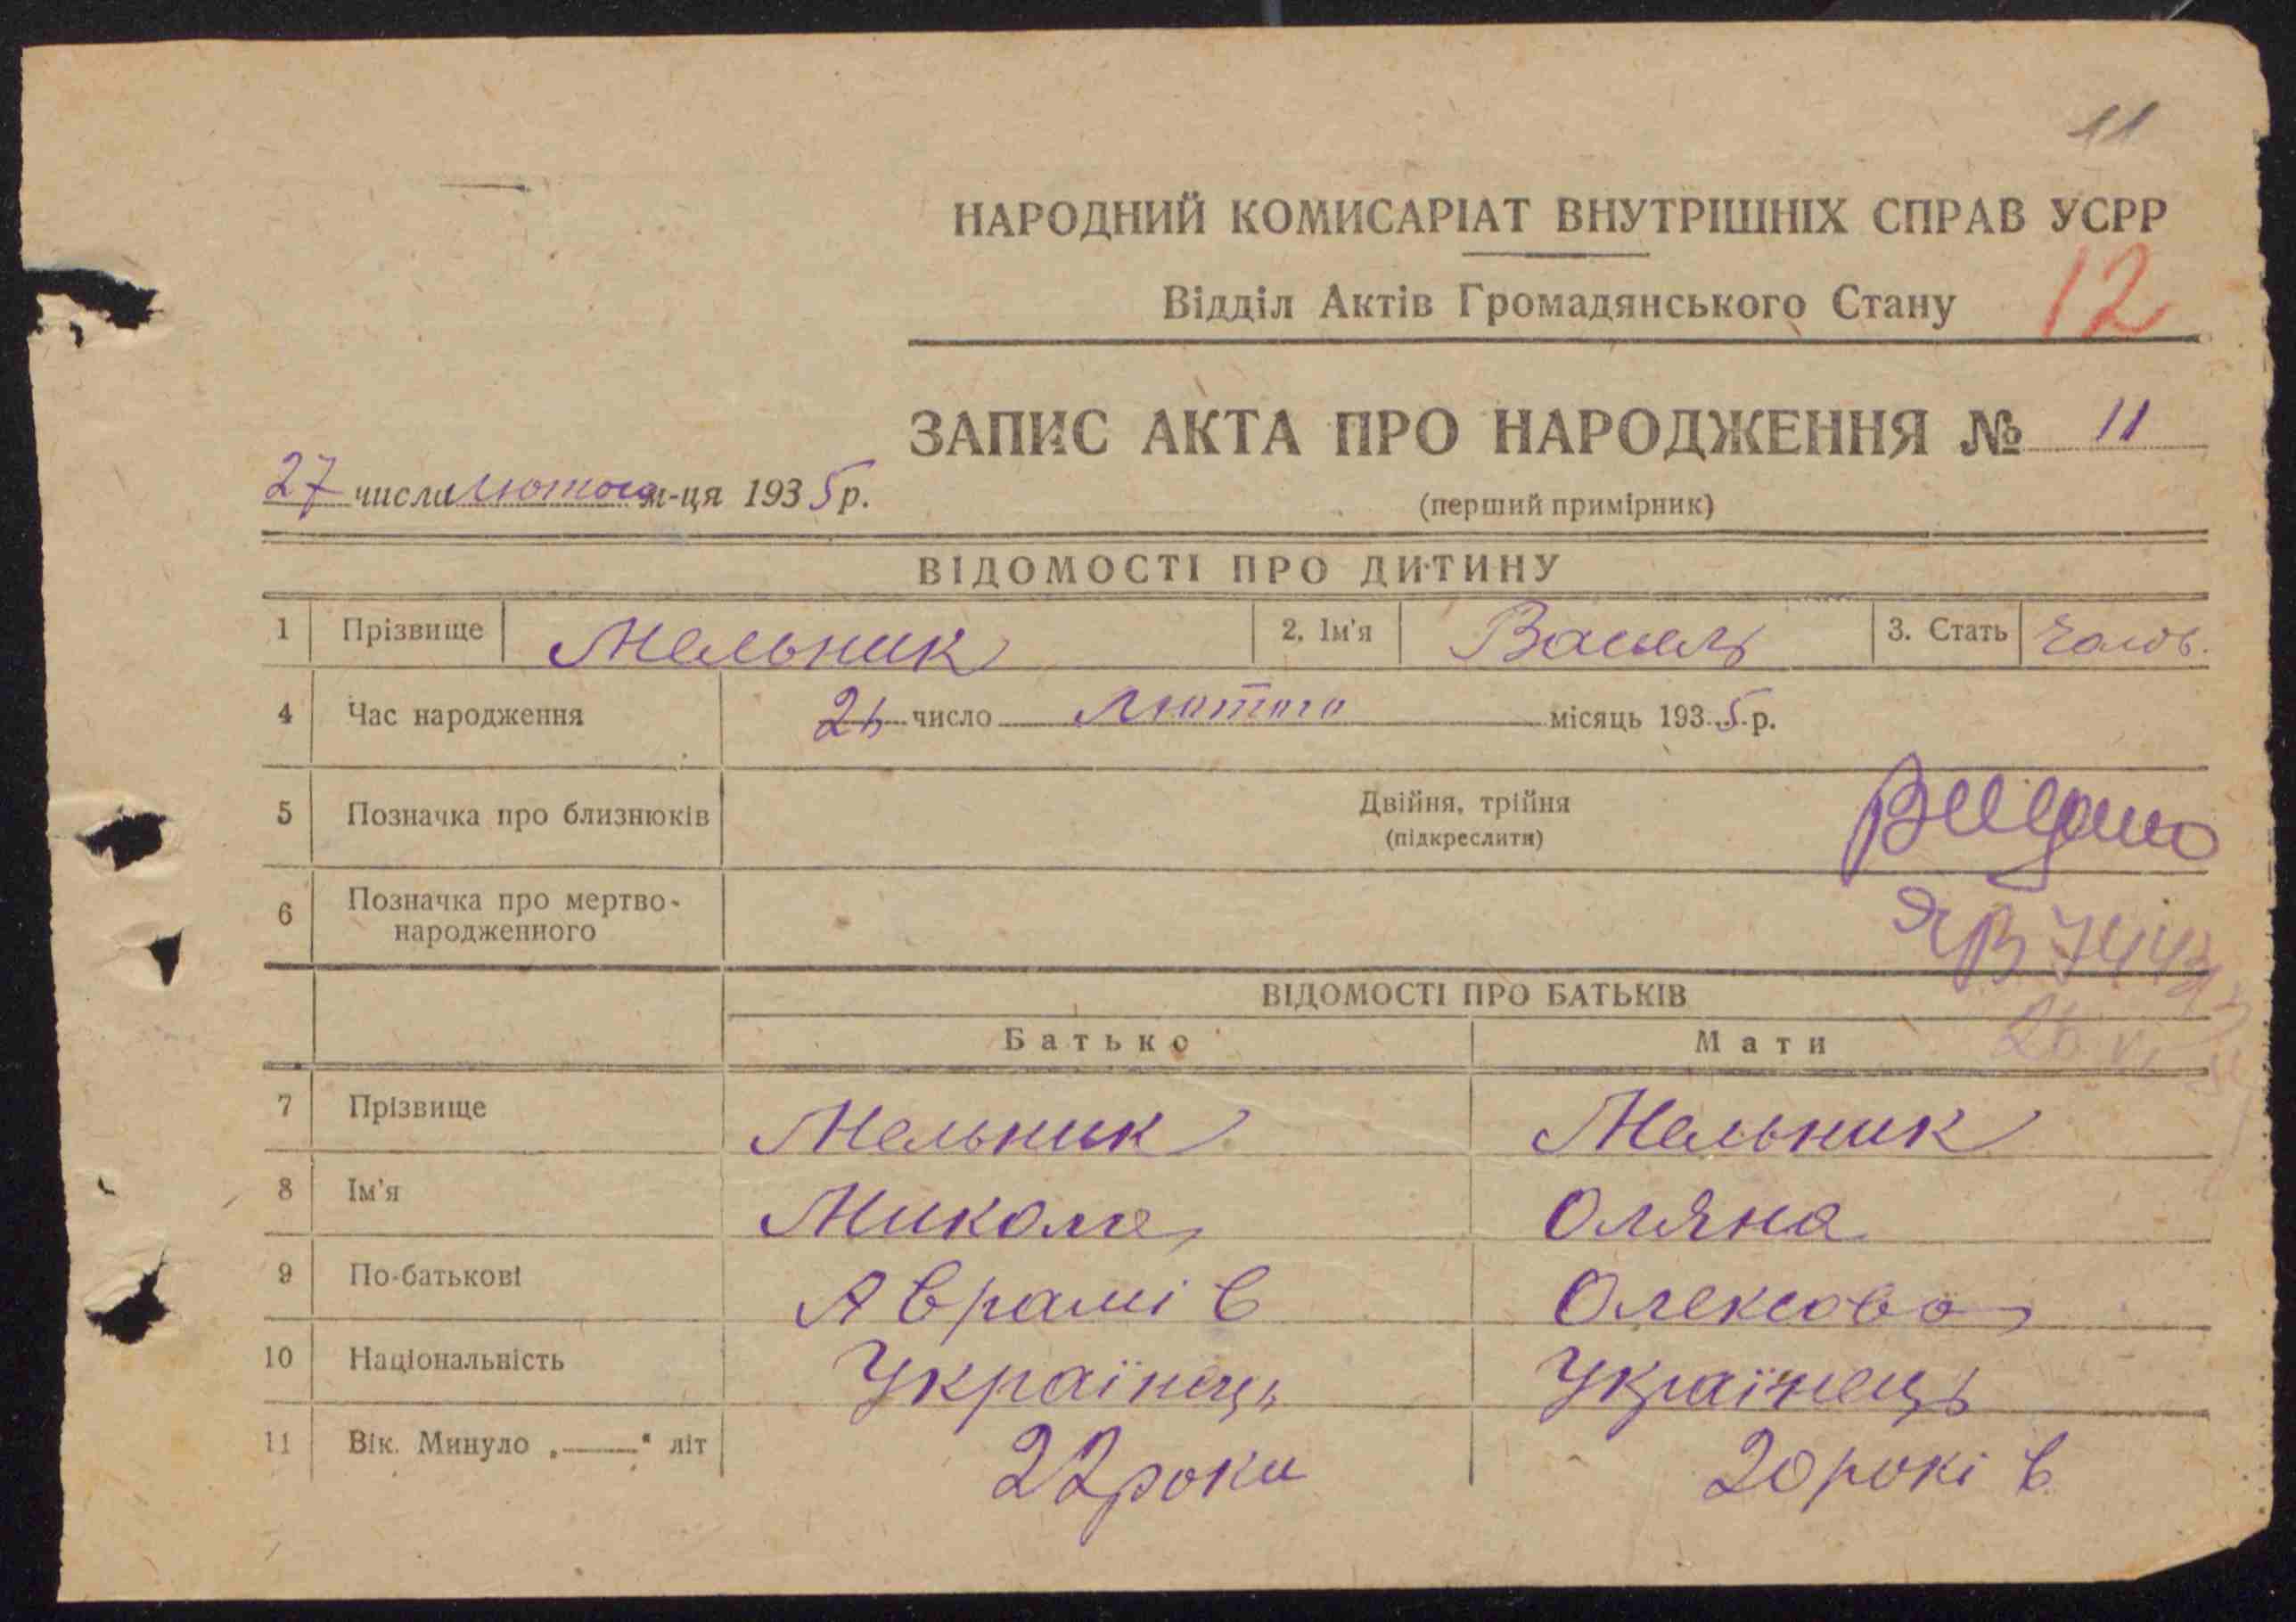 11
НАРОДНИЙ КОМИСАРІАТ ВНУТРІШНІХ СПРАВ УСРР
Відділ Актів Громадянського Стану 12
ЗАПИС АКТА ПРО НАРОДЖЕННЯ № 11
27 числа лютого м-ця 1935 р.
(перший примірник)
ВІДОМОСТІ ПРО ДИТИНУ
1 Прізвище Мельник 2. Ім'я Василь 3. Стать Чолов.
4 Час народження число лютого місяць 1935 р.
5 Позначка про близнюків Двійня, трійня
(підкреслити)
6 Позначка про мертво-
народженного
ВІДОМОСТІ ПРО БАТЬКІВ
Батько Мати
7 Прізвище Мельник Мельник
8 Ім'я Микола Оляна
9 По-батькові Аврамів Олексова
10 Національність Українець Українець
11 Вік. Минуло „——“ літ 22 роки 20 років